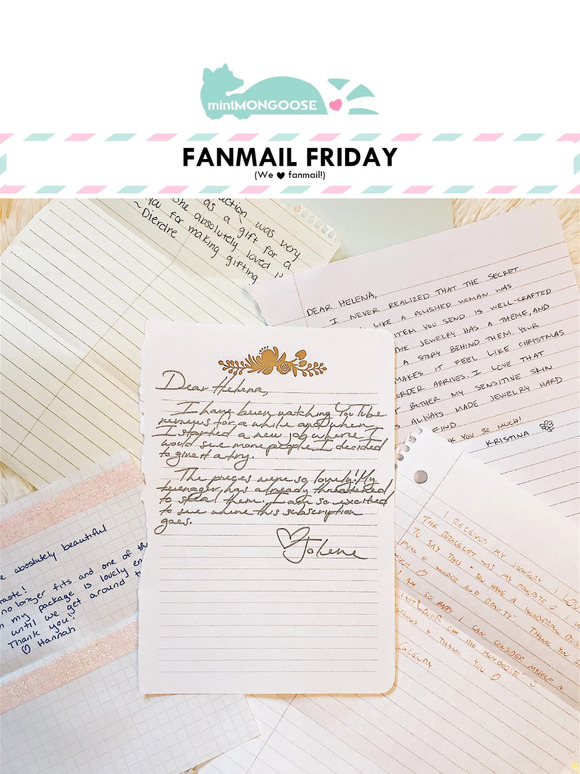 mintMONGOOSE
FANMAIL FRIDAY
(We ♥ fanmail!)
ction was very
as a gift for a
She absolutely loved i
you for making gifting
~Dierdre
DEAR HELENA,
I NEVER REALIZED THAT THE SECRET
LIKE A POLISHED WOMAN WAS
ITEM YOU SEND IS WELL-CRAFTED
THE JEWELRY HAS A THEME, AND
A STORY BEHIND THEM. YOUR
MAKES IT FEEL LIKE CHRISTMAS
ORDER ARRIVES. I LOVE THAT
BOTHER MY SENSITIVE SKIN
ALWAYS MADE JEWELRY HARD
FIND
YOU SO MUCH!
KRISTINA
Dear Helena,
I have been watching YouTube
reviews for a while and when
I started a new job where I
would see more people I decided
to give it a try.
The pieces were so lovely! My
teenager has already threatened
to steal them. I am so excited
to see where this subscription
goes.
♡Jolene
absolutely beautiful
taste!
no longer fits and one of th
my package is lovely en
until we get around t
Thank you!
♡ Hannah
I RECEIVED MY
THE BRACELET WAS MY
TO SAY THAT YOU HAVE A WONDERFUL
FULL
AND BEAUTY. THANK YOU
I AM SO HAPPY I CAN CONSIDER MYSELF A
THANK YOU